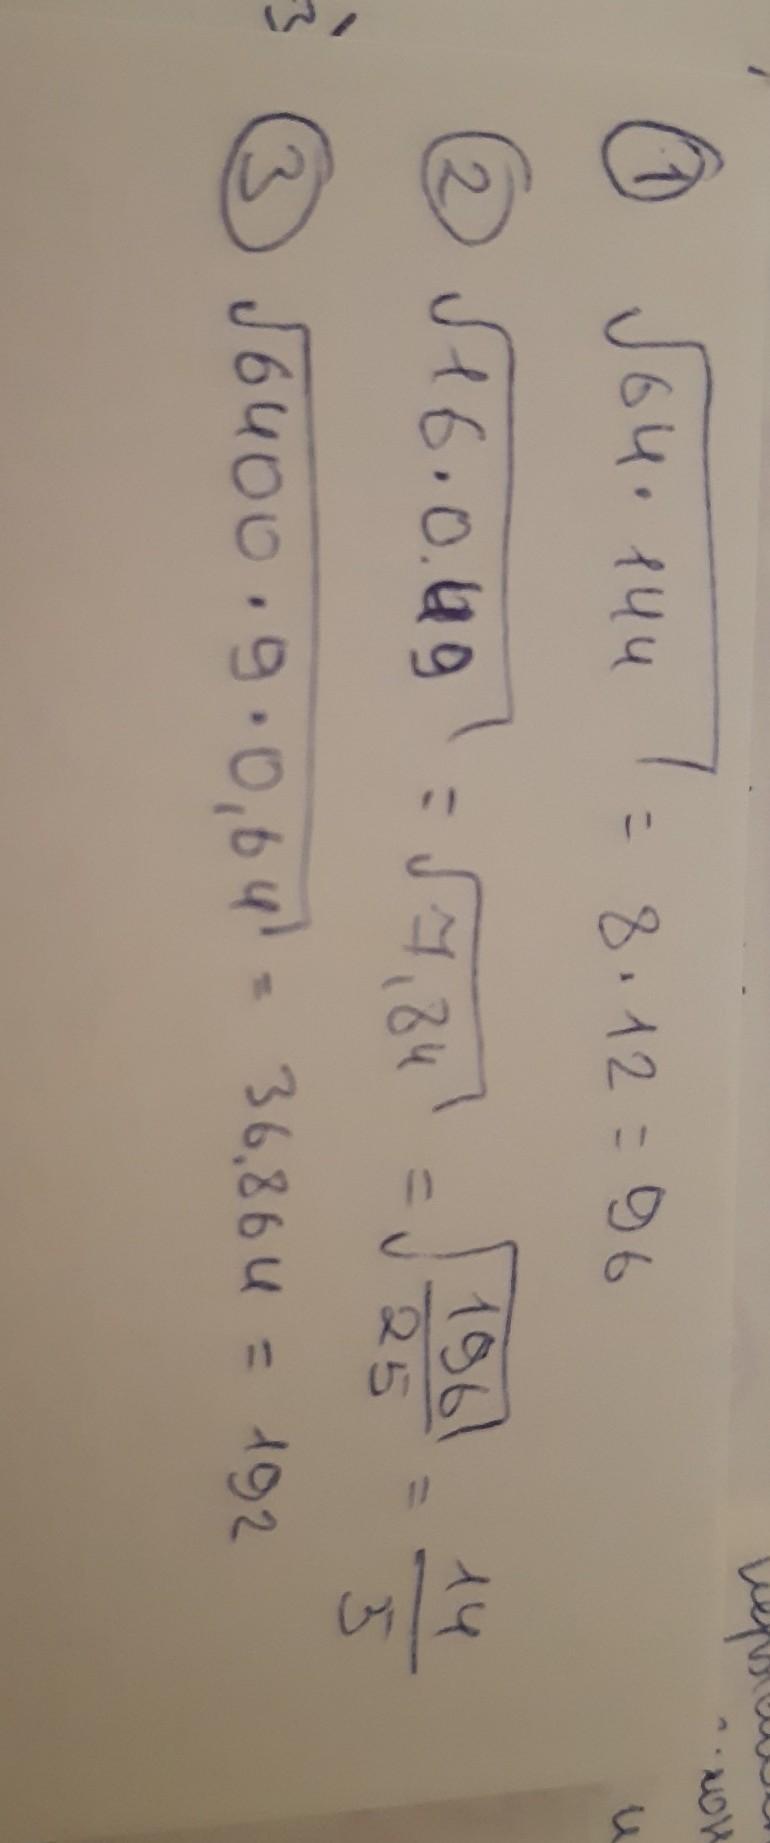 ① √64 · 144 = 8 · 12 = 96
② √16 · 0.49 = √7,84 = √196/25 = 14/5
③ √6400 · 9 · 0,64 = 36.864 = 192